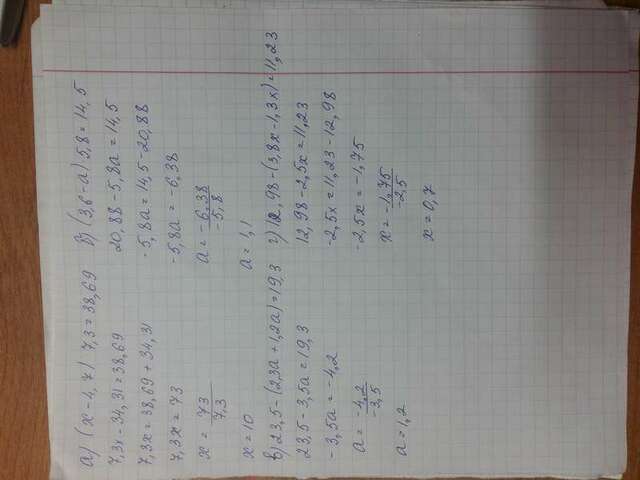 а) (x - 4,7) 7,3 = 38,69
7,3x - 34,31 = 38,69
7,3x = 38,69 + 34,31
7,3x = 73
x = 73/7,3
x = 10
б) (3,6 - a) 5,8 = 14,5
20,88 - 5,8a = 14,5
-5,8a = 14,5 - 20,88
-5,8a = -6,38
a = -6,38/-5,8
a = 1,1
в) 23,5 - (2,3a + 1,2a) = 19,3
23,5 - 3,5a = 19,3
-3,5a = -4,2
a = -4,2/-3,5
a = 1,2
г) 12,98 - (3,8x - 1,3x) = 11,23
12,98 - 2,5x = 11,23
-2,5x = 11,23 - 12,98
-2,5x = -1,75
x = -1,75/-2,5
x = 0,7